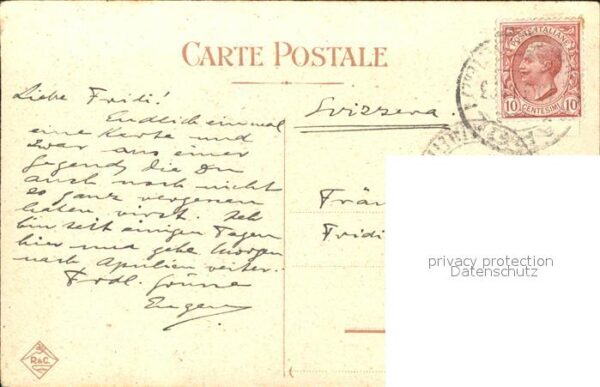 CARTE POSTALE
POSTE ITALIANE
10 CENTESIMI 10
Liebe Fridi!
Endlich einmal
eine Karte und
zwar aus einer
Gegend, die Du
auch noch nicht
so ganz vergessen
haben wirst. Ich
bin seit einigen Tagen
hier und gehe morgen
nach Apulien weiter.
Frdl. Grüsse
Eugen
Svizzera.
Frän
Fridi
privacy protection
Datenschutz
R&C.